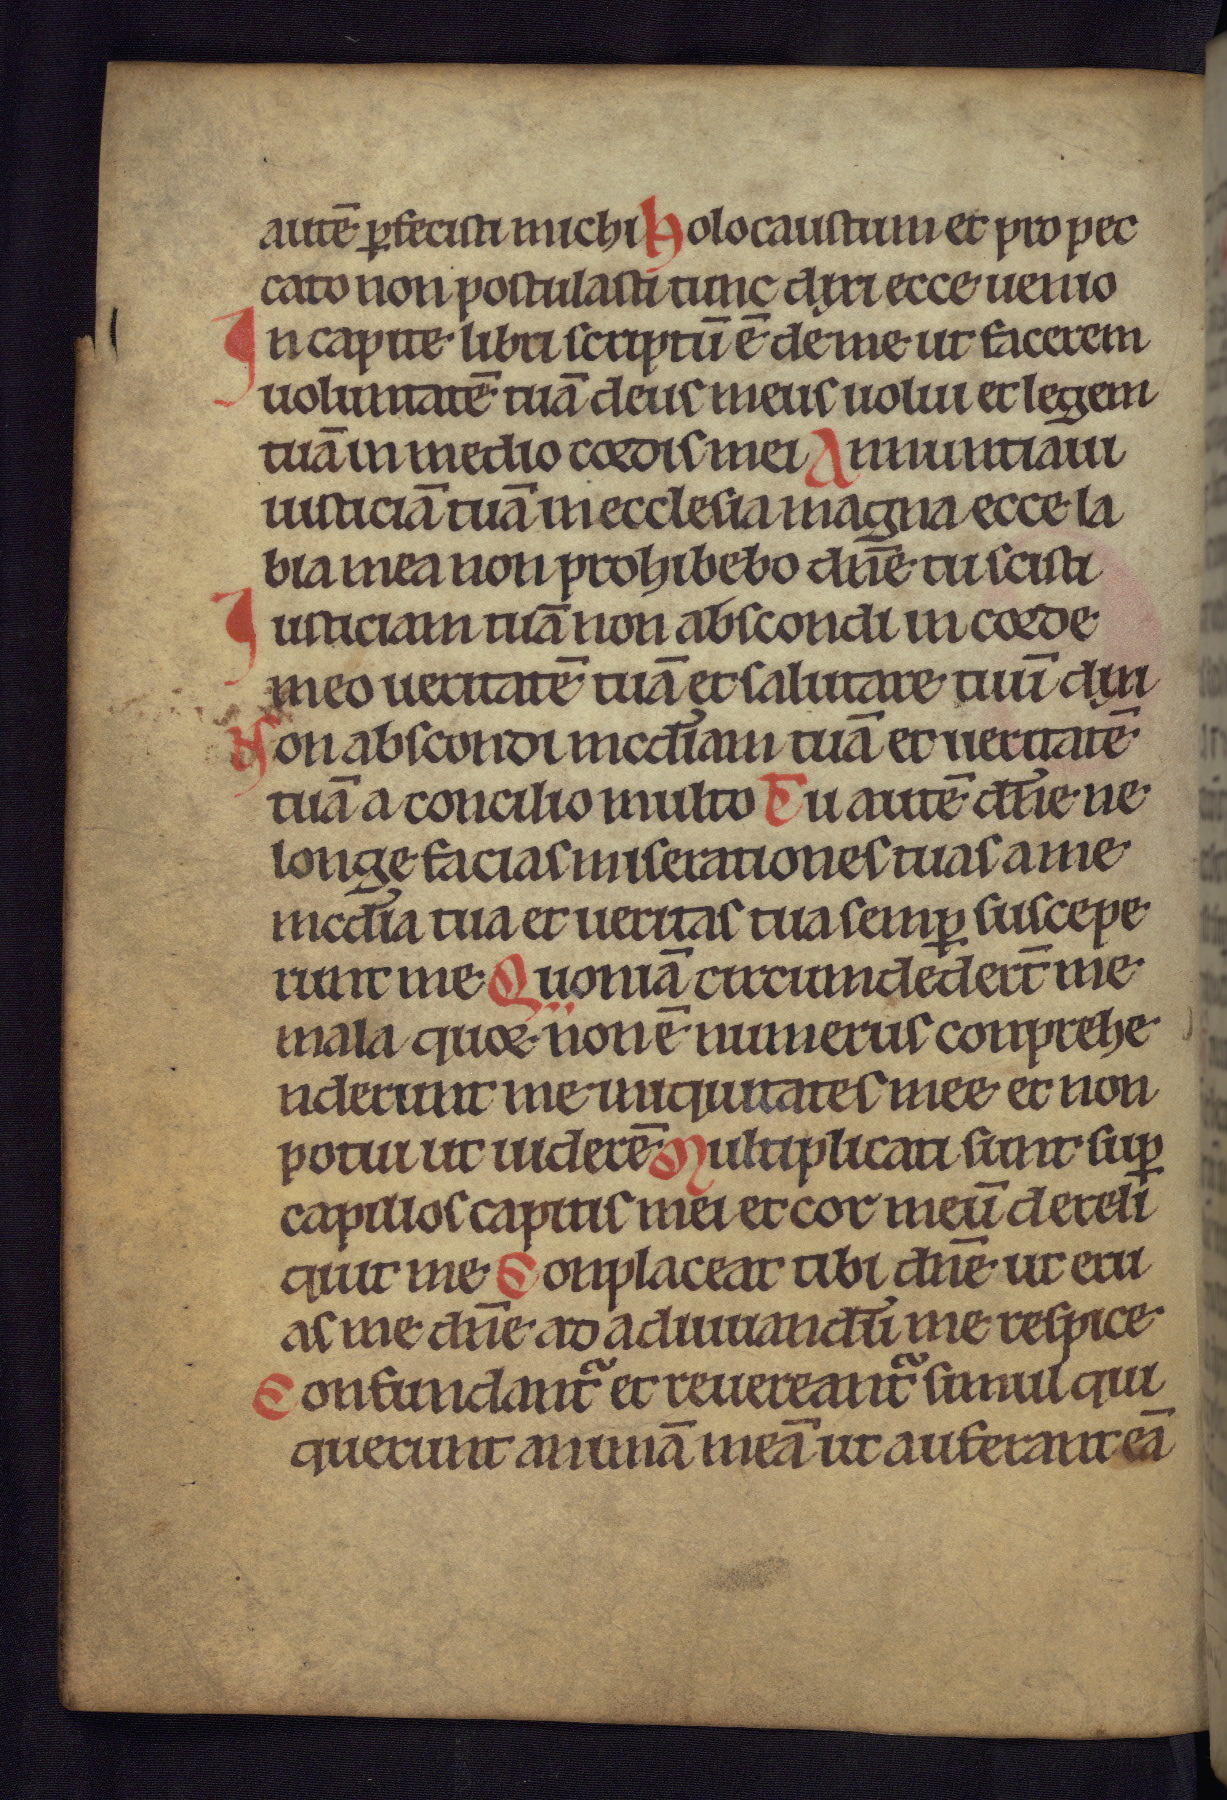 autē ꝑfecisti michi Holocaustum et pro pec
cato non postulasti tunc dixi ecce uenio
In capite libri scriptū ē de me ut facerem
uoluntatē tuā deus meus uolui et legem
tuā in medio cordis mei Annuntiaui
iusticiā tuā in ecclesia magna ecce la
bia mea non prohibebo dn̄e tu scisti
Iusticiam tuā non abscondi in corde
meo ueritatē tuā et salutare tuū dixi
Non abscondi mcd̄iam tuā et ueritatē
tuā a concilio multo Tu autē dn̄e ne
longe facias miserationes tuas a me
mcd̄ia tua et ueritas tua semꝑ suscepe
runt me Quoniā circumdeder̄t me
mala quoꝝ non ē numerus conprehe
nderunt me iniquitates mee et non
potui ut uiderē Multiplicati sunt suꝑ
capillos capitis mei et cor meū dereli
quit me Conplaceat tibi dn̄e ut eru
as me dn̄e ad adiuuandū me respice
Confundant᷑ et reuereant᷑ simul qui
querunt animā meā ut auferant eā